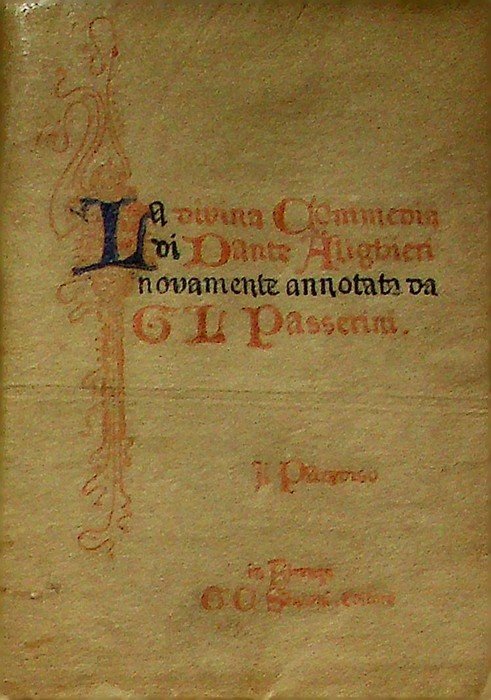 La divina Commedia
di Dante Alighieri
novamente annotata da
G L Passerini.
Il
in Firenze
G. C. Sansoni, editore